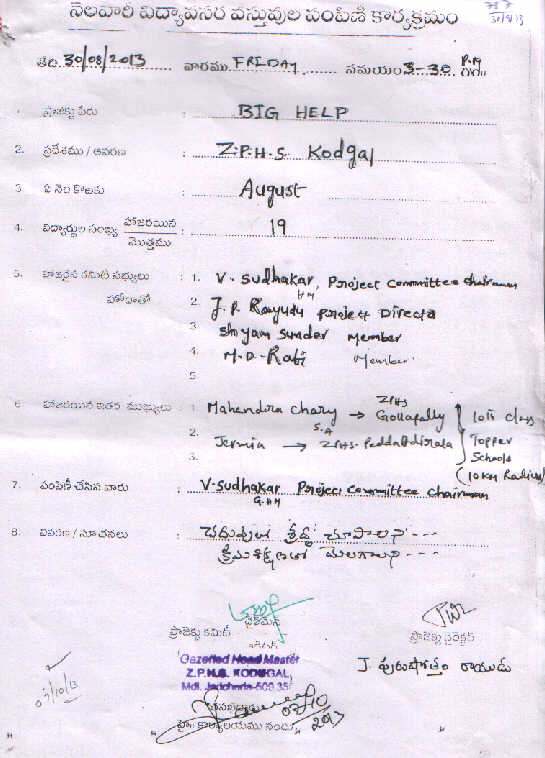 నెలవారి విద్యావసర వస్తువుల పంపిణీ కార్యక్రమం
తేది 30/08/2013 వారము FRIDAY సమయం 3-30 P.M
ప్రాజెక్టు పేరు : BIG HELP
2. ప్రదేశము / ఆవరణ : Z.P.H.S Kodgal
3. ఏ నెల కొరకు : August
4. విద్యార్థుల సంఖ్య హాజరయిన : 19
మొత్తము
5. హాజరైన కమిటీ సభ్యులు : 1. V. Sudhakar, Project Committee Chairman
హోదాతో 2. J. P. Rayudu Project Director
3. Shyam Sunder Member
4. M.D. Rafi Member
5.
6. హాజరయిన ఇతర ముఖ్యులు : 1. Mahendra Chary → ZPHS Gollapally 10th Class
S.A
2. Jermia → ZPHS. Peddaadirala Topper
3. Schools
(10 KM Radius)
7. పంపిణీ చేసిన వారు : V. Sudhakar Project Committee Chairman
G.HM
8. వివరణ / సూచనలు : చదువులో శ్రద్ధ చూపాలని ---
క్రమశిక్షణతో మెలగాలని ---
ఛైర్మెన్
ప్రాజెక్టు కమిటీ ప్రాజెక్టు డైరెక్టర్
Gazetted Head Master J. పురుషోత్తం రాయుడు
Z.P.H.S. KODGAL
Mdl. Jadcherla-509
03/10/13